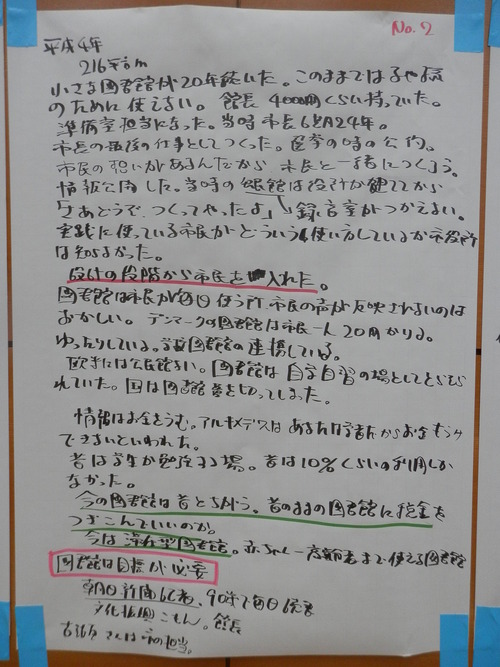 No.2
平成4年
216平方m
小さな図書館が20年続いた。このままでは子や孫
のために使えない。館長 くらい持っていた。
準備室担当になった。当時市長6期24年。
市長の最後の仕事としてつくった。選挙の時の公約。
市民の想いがあるんだから 市民と一緒につくろう。
情報公開した。当時の 館は設計が建ててから
「さあどうぞ、つくってやったよ」 録音室がつかえない。
実践に使っている市民がどういう使い方しているか市役所
は知らなかった。
設計の段階から市民を入れた。
図書館は市民が毎日使う所 市民の声が反映されないのは
おかしい。デンマークの図書館は市民一人20冊かりる。
ゆったりしている。 図書館の連携している。
欧米には公民館ない。図書館は自学自習の場としてとらえら
れていた。国は図書館 を切ってしまった。
情報はお金をうむ。アルキメデスは からお金もうけ
できないといわれた。
昔は学生が勉強する場。昔は10%くらいの利用しか
なかった。
今の図書館は昔とちがう。昔のままの図書館に税金を
つぎこんでいいのか。
今は滞在型図書館。赤ちゃん〜高齢者まで使える図書館
図書館は目標が必要
朝日新聞 、90年で毎日
文化 こもん。館長
さんは の担当。